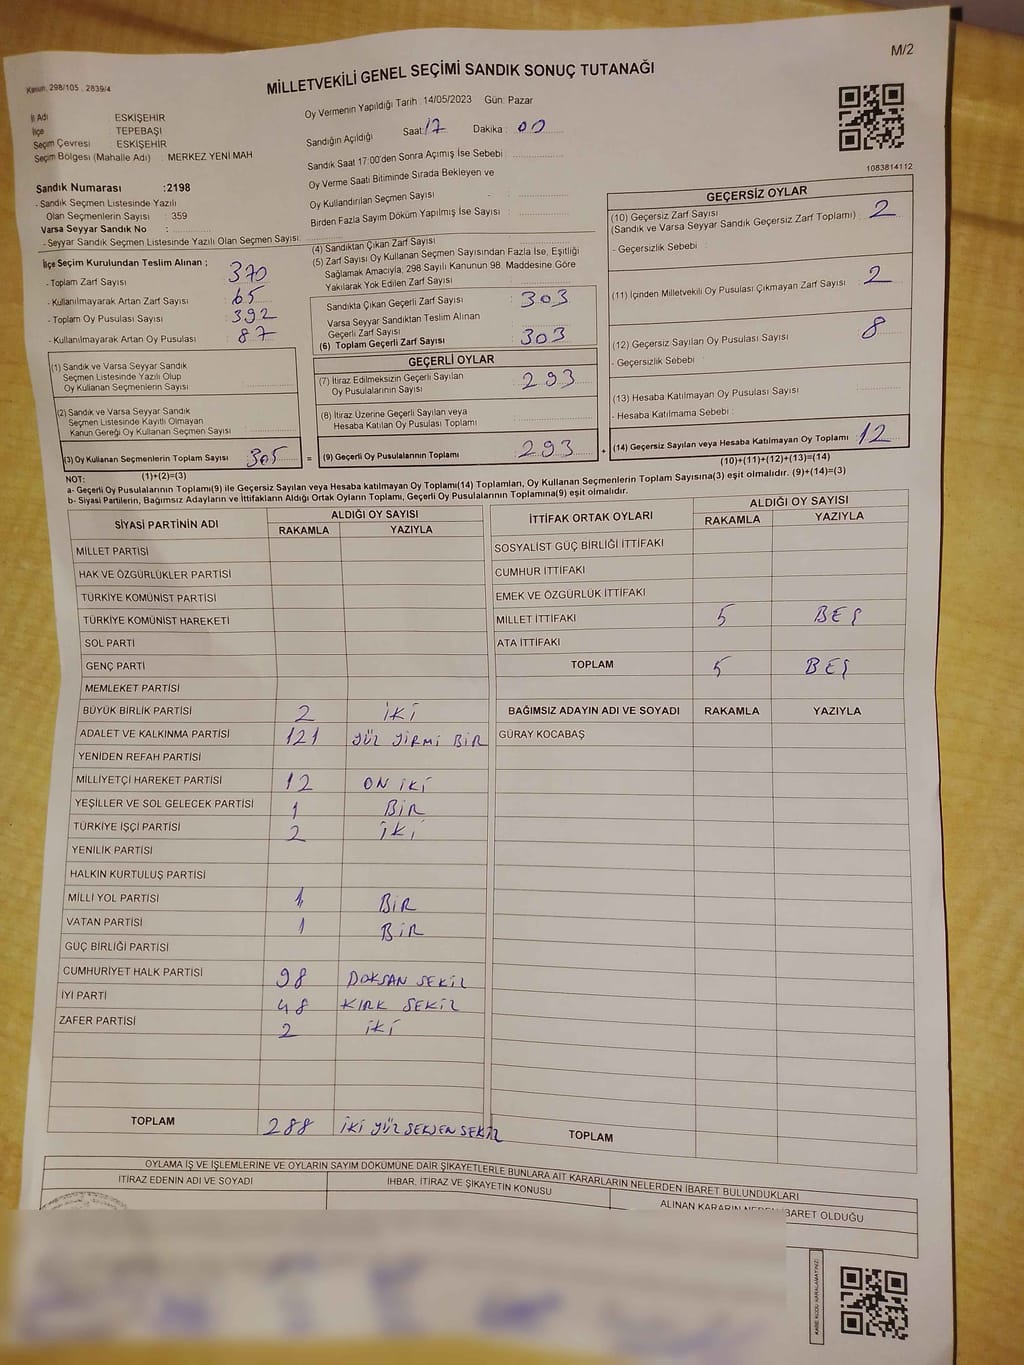 M/2
Kanun: 298/105 , 2839/4
MİLLETVEKİLİ GENEL SEÇİMİ SANDIK SONUÇ TUTANAĞI
İl Adı ESKİŞEHİR
İlçe : TEPEBAŞI
Seçim Çevresi : ESKİŞEHİR
Seçim Bölgesi (Mahalle Adı) : MERKEZ YENİ MAH
Oy Vermenin Yapıldığı Tarih : 14/05/2023 Gün: Pazar
Sandığın Açıldığı Saat: 17 Dakika : 00
Sandık Saat 17:00'den Sonra Açılmış İse Sebebi :
Oy Verme Saati Bitiminde Sırada Bekleyen ve
Oy Kullandırılan Seçmen Sayısı :
Birden Fazla Sayım Döküm Yapılmış İse Sayısı :
1083814112
Sandık Numarası :2198
- Sandık Seçmen Listesinde Yazılı
Olan Seçmenlerin Sayısı : 359
Varsa Seyyar Sandık No :
- Seyyar Sandık Seçmen Listesinde Yazılı Olan Seçmen Sayısı:
İlçe Seçim Kurulundan Teslim Alınan ;
- Toplam Zarf Sayısı : 370
- Kullanılmayarak Artan Zarf Sayısı : 65
- Toplam Oy Pusulası Sayısı : 392
- Kullanılmayarak Artan Oy Pusulası : 87
(1) Sandık ve Varsa Seyyar Sandık
Seçmen Listesinde Yazılı Olup
Oy Kulanan Seçmenlerin Sayısı :
(2) Sandık ve Varsa Seyyar Sandık
Seçmen Listesinde Kayıtlı Olmayan
Kanun Gereği Oy Kullanan Seçmen Sayısı :
(3) Oy Kullanan Seçmenlerin Toplam Sayısı : 305
(1)+(2)=(3)
(4) Sandıktan Çıkan Zarf Sayısı :
(5) Zarf Sayısı Oy Kullanan Seçmen Sayısından Fazla İse, Eşitliği
Sağlamak Amacıyla; 298 Sayılı Kanunun 98. Maddesine Göre
Yakılarak Yok Edilen Zarf Sayısı :
Sandıkta Çıkan Geçerli Zarf Sayısı : 303
Varsa Seyyar Sandıktan Teslim Alınan
Geçerli Zarf Sayısı :
(6) Toplam Geçerli Zarf Sayısı : 303
GEÇERLİ OYLAR
(7) İtiraz Edilmeksizin Geçerli Sayılan
Oy Pusulalarının Sayısı : 293
(8) İtiraz Üzerine Geçerli Sayılan veya
Hesaba Katılan Oy Pusulası Toplamı :
= (9) Geçerli Oy Pusulalarının Toplamı : 293
GEÇERSİZ OYLAR
(10) Geçersiz Zarf Sayısı
(Sandık ve Varsa Seyyar Sandık Geçersiz Zarf Toplamı) : 2
- Geçersizlik Sebebi :
(11) İçinden Milletvekili Oy Pusulası Çıkmayan Zarf Sayısı : 2
(12) Geçersiz Sayılan Oy Pusulası Sayısı : 8
- Geçersizlik Sebebi :
(13) Hesaba Katılmayan Oy Pusulası Sayısı :
- Hesaba Katılmama Sebebi :
+ (14) Geçersiz Sayılan veya Hesaba Katılmayan Oy Toplamı : 12
(10)+(11)+(12)+(13)=(14)
NOT:
a- Geçerli Oy Pusulalarının Toplamı(9) ile Geçersiz Sayılan veya Hesaba Katılmayan Oy Toplamı(14) Toplamları, Oy Kullanan Seçmenlerin Toplam Sayısına(3) eşit olmalıdır. (9)+(14)=(3)
b- Siyasi Partilerin, Bağımsız Adayların ve İttifakların Aldığı Ortak Oyların Toplamı, Geçerli Oy Pusulalarının Toplamına(9) eşit olmalıdır.
SİYASİ PARTİNİN ADI ALDIĞI OY SAYISI
RAKAMLA YAZIYLA
MİLLET PARTİSİ
HAK VE ÖZGÜRLÜKLER PARTİSİ
TÜRKİYE KOMÜNİST PARTİSİ
TÜRKİYE KOMÜNİST HAREKETİ
SOL PARTİ
GENÇ PARTİ
MEMLEKET PARTİSİ
BÜYÜK BİRLİK PARTİSİ 2 İKİ
ADALET VE KALKINMA PARTİSİ 121 YÜZ YİRMİ BİR
YENİDEN REFAH PARTİSİ
MİLLİYETÇİ HAREKET PARTİSİ 12 ON İKİ
YEŞİLLER VE SOL GELECEK PARTİSİ 1 BİR
TÜRKİYE İŞÇİ PARTİSİ 2 İKİ
YENİLİK PARTİSİ
HALKIN KURTULUŞ PARTİSİ
MİLLİ YOL PARTİSİ 1 BİR
VATAN PARTİSİ 1 BİR
GÜÇ BİRLİĞİ PARTİSİ
CUMHURİYET HALK PARTİSİ 98 DOKSAN SEKİZ
İYİ PARTİ 48 KIRK SEKİZ
ZAFER PARTİSİ 2 İKİ
TOPLAM 288 İKİ YÜZ SEKSEN SEKİZ
İTTİFAK ORTAK OYLARI ALDIĞI OY SAYISI
RAKAMLA YAZIYLA
SOSYALİST GÜÇ BİRLİĞİ İTTİFAKI
CUMHUR İTTİFAKI
EMEK VE ÖZGÜRLÜK İTTİFAKI
MİLLET İTTİFAKI 5 BEŞ
ATA İTTİFAKI
TOPLAM 5 BEŞ
BAĞIMSIZ ADAYIN ADI VE SOYADI RAKAMLA YAZIYLA
GÜRAY KOCABAŞ
TOPLAM
OYLAMA İŞ VE İŞLEMLERİNE VE OYLARIN SAYIM DÖKÜMÜNE DAİR ŞİKAYETLERLE BUNLARA AİT KARARLARIN NELERDEN İBARET BULUNDUKLARI
İTİRAZ EDENİN ADI VE SOYADI İHBAR, İTİRAZ VE ŞİKAYETİN KONUSU ALINAN KARARIN NEDEN İBARET OLDUĞU
KARE KODU KARALAMAYINIZ!